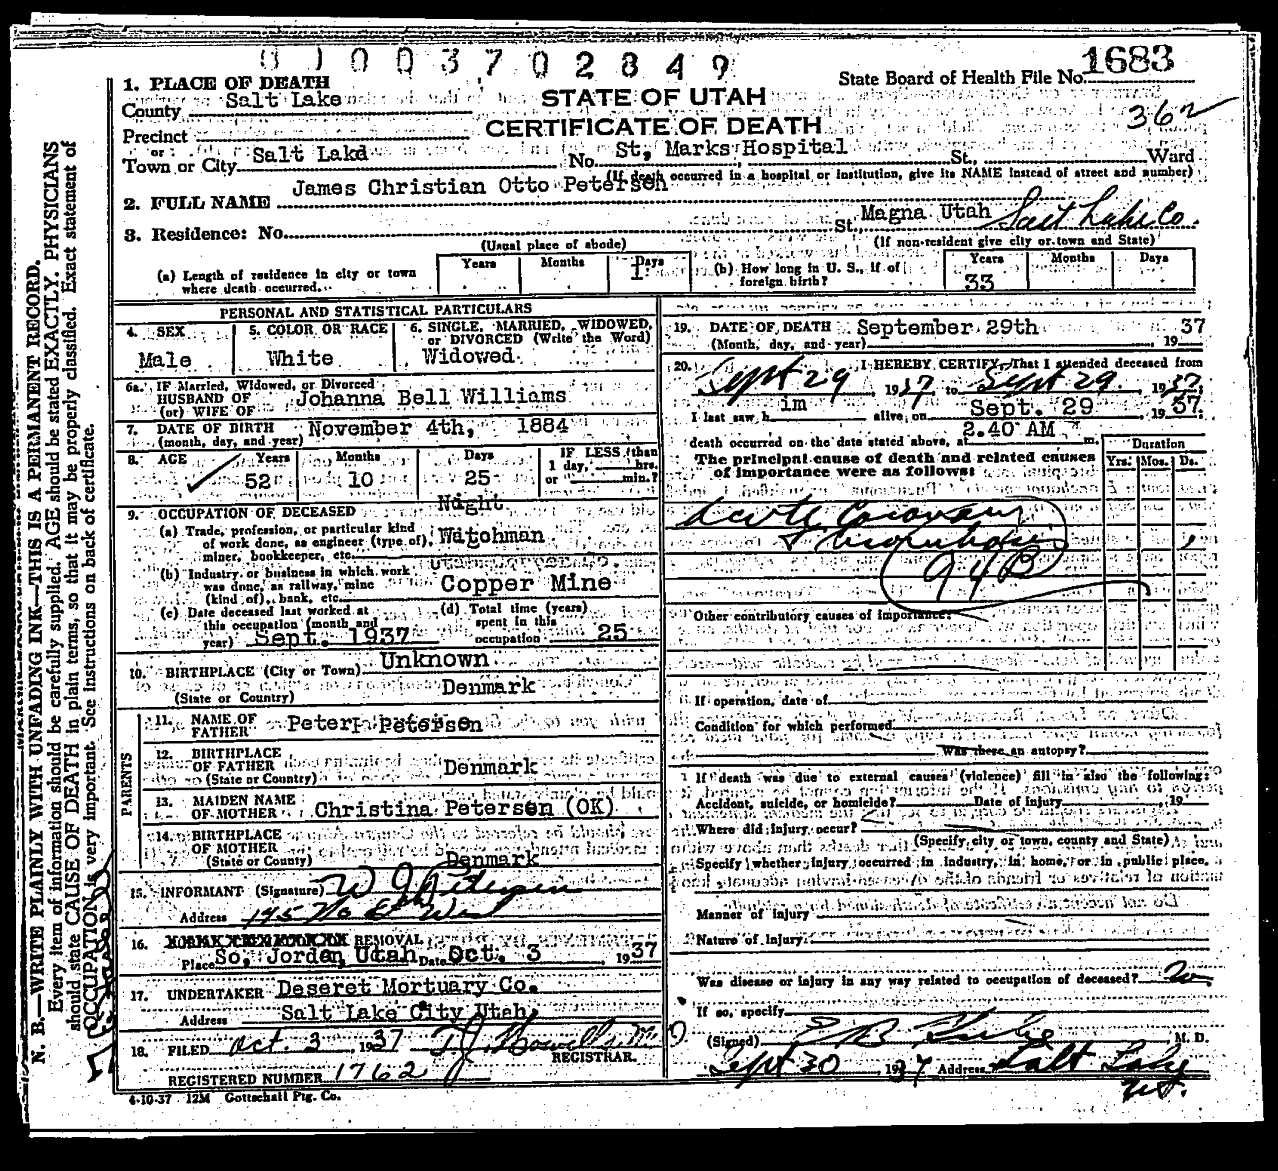 0 1 0 0 3 7 0 2 8 4 9
State Board of Health File No. 1683
362
STATE OF UTAH
CERTIFICATE OF DEATH
1. PLACE OF DEATH
County Salt Lake
Precinct
or
Town or City Salt Lake No. St, Marks Hospital St., Ward
(If death occurred in a hospital or institution, give its NAME instead of street and number)
2. FULL NAME James Christian Otto Petersen
3. Residence: No. St., Magna Utah Salt Lake Co.
(Usual place of abode) (If non-resident give city or town and State)
(a) Length of residence in city or town where death occurred. Years Months Days 1
(b) How long in U. S., if of foreign birth? Years 33 Months Days
PERSONAL AND STATISTICAL PARTICULARS
4. SEX Male
5. COLOR OR RACE White
6. SINGLE, MARRIED, WIDOWED, or DIVORCED (Write the Word) Widowed
6a. IF Married, Widowed, or Divorced
HUSBAND OF
(or) WIFE OF Johanna Bell Williams
7. DATE OF BIRTH (month, day, and year) November 4th, 1884
8. AGE Years 52 Months 10 Days 25 IF LESS than 1 day, hrs. or min.?
9. OCCUPATION OF DECEASED
(a) Trade, profession, or particular kind of work done, as engineer (type of), miner, bookkeeper, etc. Night Watchman
(b) Industry or business in which work was done, as railway, mine (kind of), bank, etc. Copper Mine
(c) Date deceased last worked at this occupation (month and year) Sept. 1937
(d) Total time (years) spent in this occupation 25
10. BIRTHPLACE (City or Town) Unknown
(State or Country) Denmark
PARENTS
11. NAME OF FATHER Peter Petersen
12. BIRTHPLACE OF FATHER (State or Country) Denmark
13. MAIDEN NAME OF MOTHER Christina Petersen (OK)
14. BIRTHPLACE OF MOTHER (State or County) Denmark
15. INFORMANT (Signature) W J Petersen
Address 175 No 8th West
16. REMOVAL
Place So. Jordan Utah Date Oct. 3, 1937
17. UNDERTAKER Deseret Mortuary Co.
Address Salt Lake City Utah,
18. FILED Oct. 3 1937 T J Howells M D
REGISTRAR.
REGISTERED NUMBER 1762
4-10-37 12M Gottschall Ptg. Co.
19. DATE OF DEATH September 29th 1937
(Month, day, and year)
20. I HEREBY CERTIFY, That I attended deceased from
Sept 29, 1937 to Sept 29, 1937.
I last saw him alive on Sept. 29, 1937.
death occurred on the date stated above, at 2.40 AM m.
The principal cause of death and related causes of importance were as follows:
Duration
Yrs. Mos. Ds.
Acute Coronary
Thrombosis
94B
Other contributory causes of importance:
If operation, date of
Condition for which performed
Was there an autopsy?
If death was due to external causes (violence) fill in also the following:
Accident, suicide, or homicide? Date of injury, 19
Where did injury occur?
(Specify city or town, county and State)
Specify whether injury occurred in industry, in home, or in public place.
Manner of injury
Nature of injury
Was disease or injury in any way related to occupation of deceased? No
If so, specify
(Signed) M. D.
Sept 30 1937 Address Salt Lake
Ut.
N. B.—WRITE PLAINLY WITH UNFADING INK—THIS IS A PERMANENT RECORD.
Every item of information should be carefully supplied. AGE should be stated EXACTLY. PHYSICIANS
should state CAUSE OF DEATH in plain terms, so that it may be properly classified. Exact statement of
OCCUPATION is very important. See instructions on back of certificate.